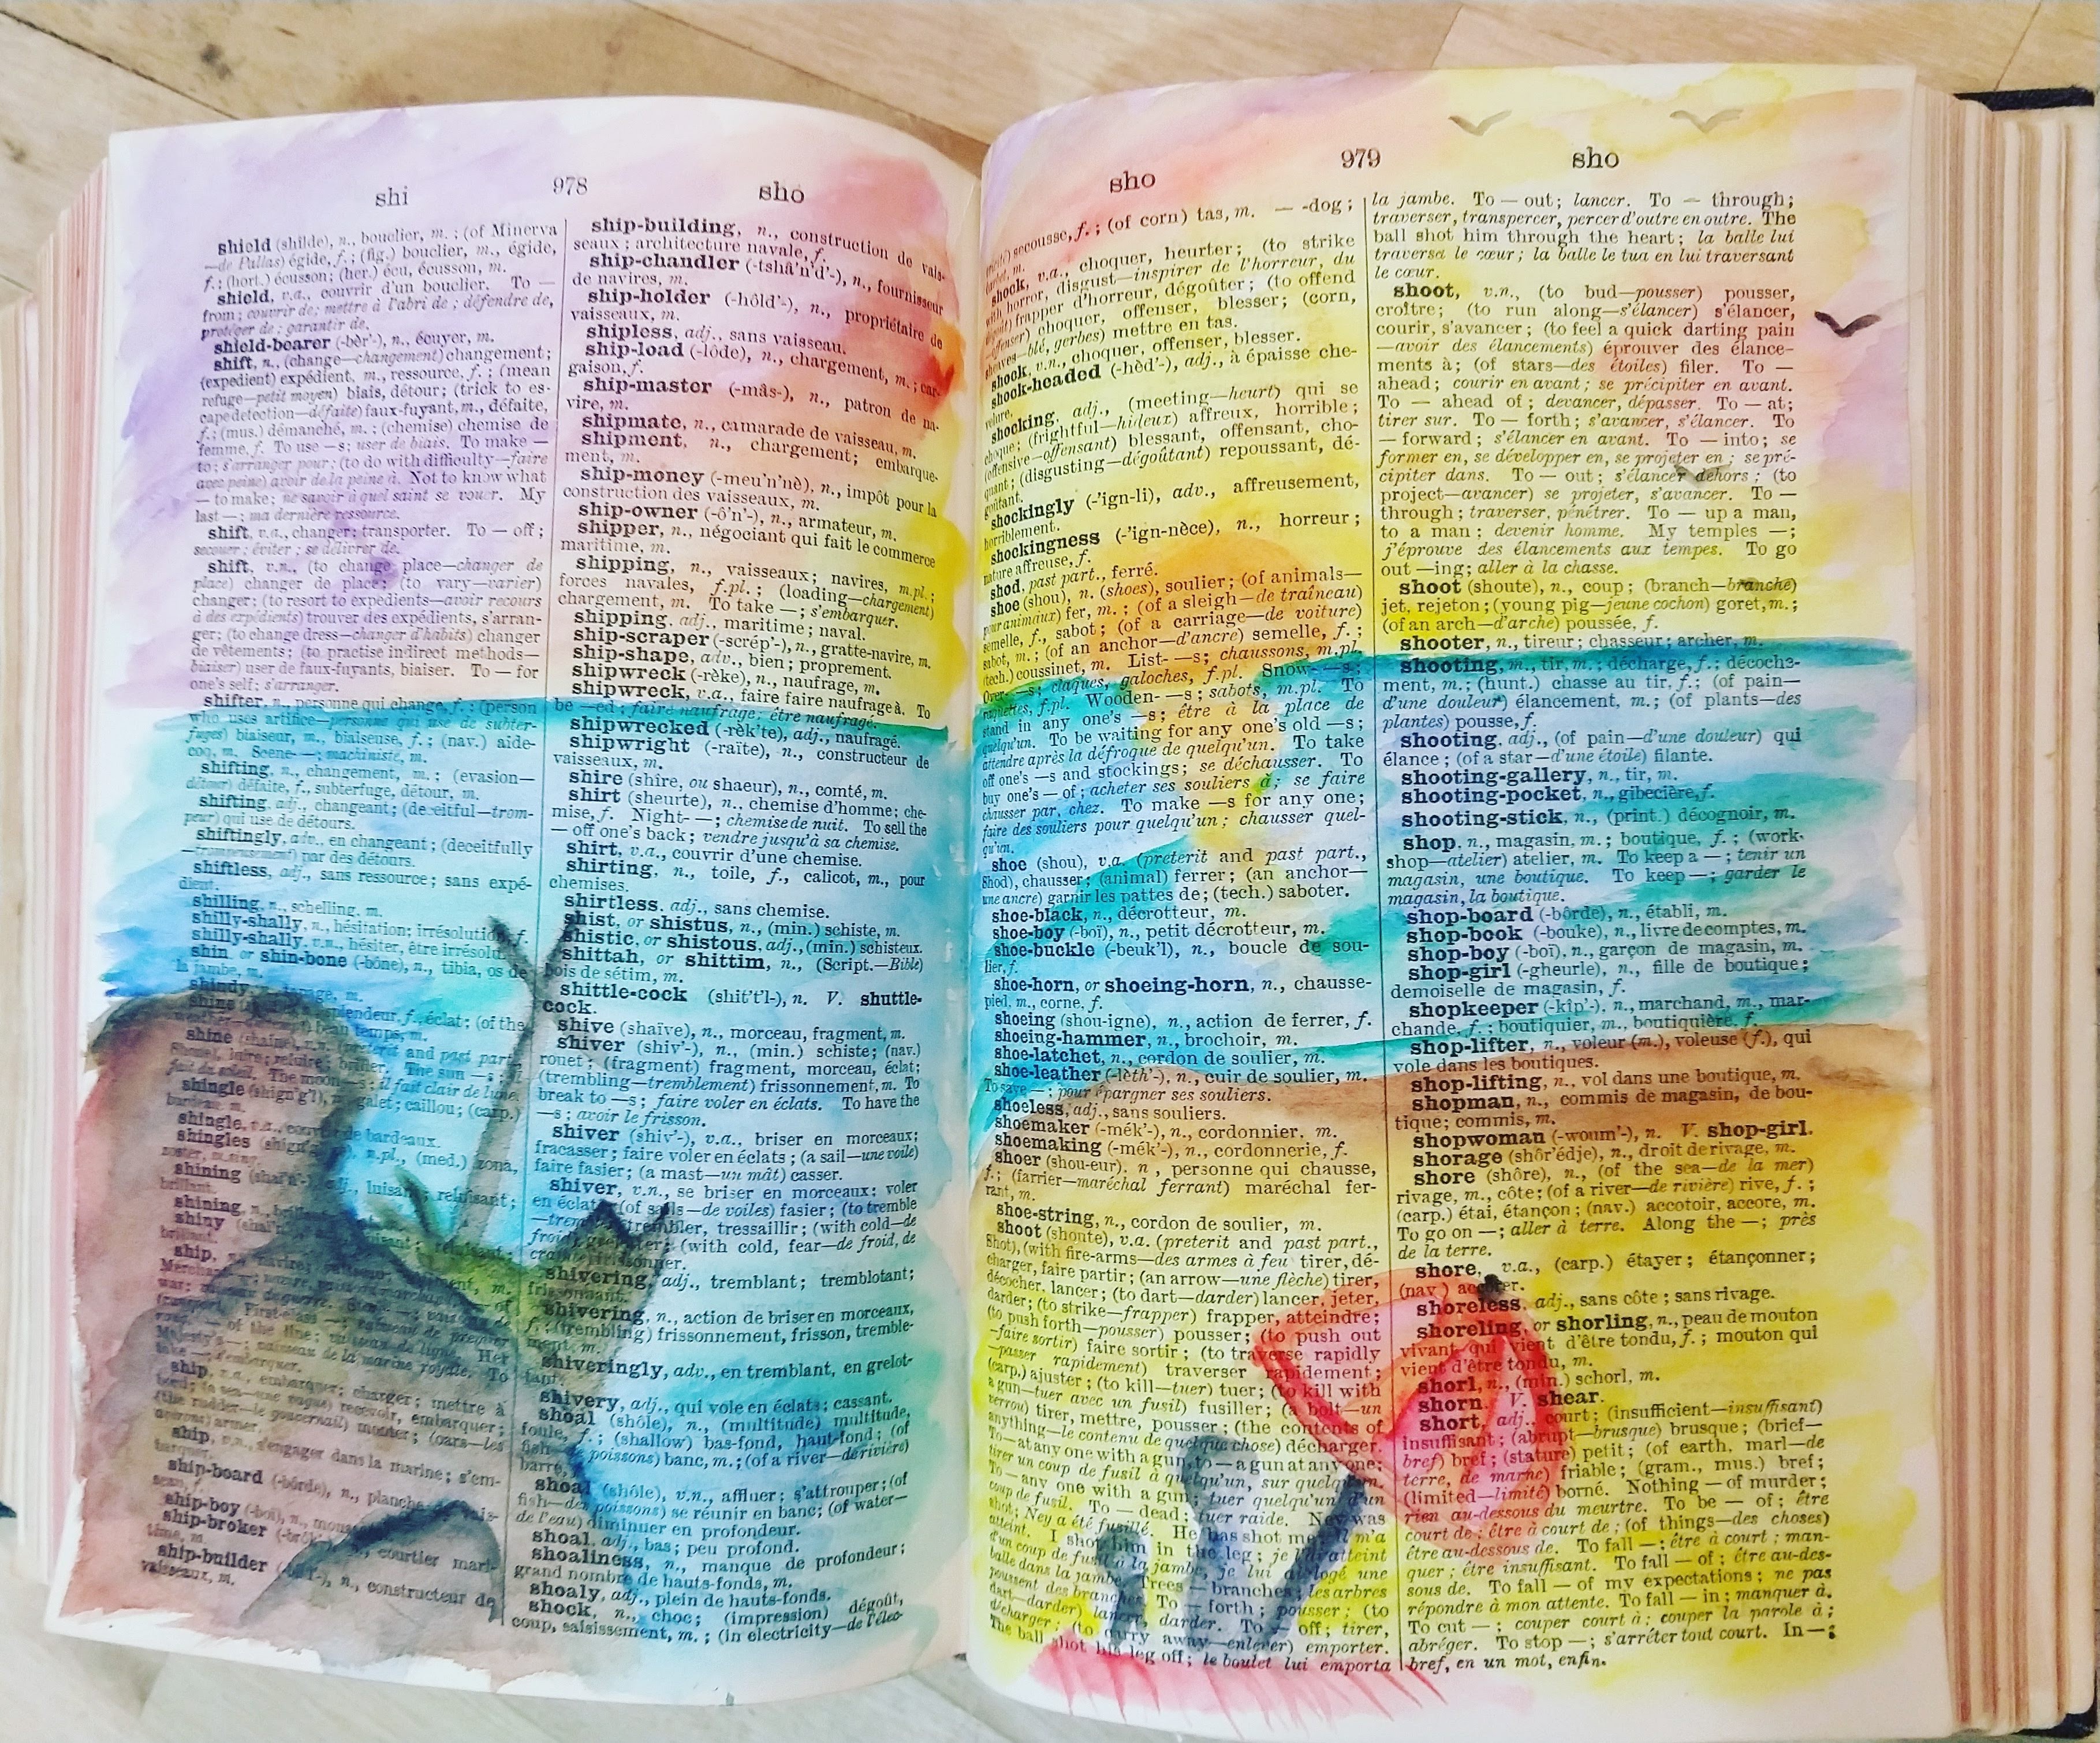 shi 978 sho
shield (shïlde), n., bouclier, m.; (of Minerva
—de Pallas) égide, f.; (fig.) bouclier, m., égide,
f.; (hort.) écusson; (her.) écu, écusson, m.
shield, v.a., couvrir d'un bouclier. To —
from; couvrir de; mettre à l'abri de; défendre de,
protéger de; garantir de.
shield-bearer (-bèr'-), n., écuyer, m.
shift, n., (change—changement) changement;
(expedient) expédient, m., ressource, f.; (mean
refuge—petit moyen) biais, détour; (trick to es-
cape detection—défaite) faux-fuyant, m., défaite,
f.; (mus.) démanché, m.; (chemise) chemise de
femme, f. To use —s; user de biais. To make —
to; s'arranger pour; (to do with difficulty—faire
avec peine) avoir de la peine à. Not to know what
— to make; ne savoir à quel saint se vouer. My
last —; ma dernière ressource.
shift, v.a., changer; transporter. To — off;
secouer; éviter; se délivrer de.
shift, v.n., (to change place—changer de
place) changer de place; (to vary—varier)
changer; (to resort to expedients—avoir recours
à des expédients) trouver des expédients, s'arran-
ger; (to change dress—changer d'habits) changer
de vêtements; (to practise indirect methods—
biaiser) user de faux-fuyants, biaiser. To — for
one's self; s'arranger.
shifter, n., personne qui change, f.; (person
who uses artifice—personne qui use de subter-
fuges) biaiseur, m., biaiseuse, f.; (nav.) aide-
coq, m. Scene- —; machiniste, m.
shifting, n., changement, m.; (evasion—
détour) défaite, f., subterfuge, détour, m.
shifting, adj., changeant; (deceitful—trom-
peur) qui use de détours.
shiftingly, adv., en changeant; (deceitfully
—trompeusement) par des détours.
shiftless, adj., sans ressource; sans expé-
dient.
shilling, n., schelling, m.
shilly-shally, n., hésitation; irrésolution, f.
shilly-shally, v.n., hésiter, être irrésolu.
shin, or shin-bone (-bône), n., tibia, os de
la jambe, m.
shindy, n., tapage, m.
shine splendeur, f., éclat; (of the
beau temps, m.
shine and past part.
Shone), luire; reluire; briller. The sun —s;
The moon —s; il fait clair de lune.
shingle (shign'g'l), n., galet; caillou; (carp.)
bardeau, m.
shingle, v.a., couvrir de bardeaux.
shingles n.pl., (med.) zona,
shining adj., luisant; reluisant;
brillant.
shining, n.,
shiny
brillant.
ship, n., navire,
ship, v.a., embarquer; charger; mettre à
bord; recevoir, embarquer;
(the rudder—le gouvernail) monter; (oars—les
avirons) armer.
ship, v.n., s'engager dans la marine; s'em-
barquer.
ship-board (-bôrde), n., planche de vais-
seau, f.
ship-boy (-boï), n., mousse
ship-broker n., courtier mari-
time, m.
ship-builder n., constructeur de
vaisseaux, m.
ship-building, n., construction de vais-
seaux; architecture navale, f.
ship-chandler (-tshâ'n'd'-), n., fournisseur
de navires, m.
ship-holder (-hôld'-), n., propriétaire de
vaisseaux, m.
shipless, adj., sans vaisseau.
ship-load (-lôde), n., chargement, m.; car-
gaison, f.
ship-master (-mâs-), n., patron de na-
vire, m.
shipmate, n., camarade de vaisseau, m.
shipment, n., chargement; embarque-
ment, m.
ship-money (-meu'n'nè), n., impôt pour la
construction des vaisseaux, m.
ship-owner (-ô'n'-), n., armateur, m.
shipper, n., négociant qui fait le commerce
maritime, m.
shipping, n., vaisseaux; navires, m.pl.;
forces navales, f.pl.; (loading—chargement)
chargement, m. To take —; s'embarquer.
shipping, adj., maritime; naval.
ship-scraper (-scrép'-), n., gratte-navire, m.
ship-shape, adv., bien; proprement.
shipwreck (-rèke), n., naufrage, m.
shipwreck, v.a., faire faire naufrage à. To
be —ed; faire naufrage; être naufragé.
shipwrecked (-rèk'te), adj., naufragé.
shipwright (-raïte), n., constructeur de
vaisseaux, m.
shire (shire, ou shaeur), n., comté, m.
shirt (sheurte), n., chemise d'homme; che-
mise, f. Night- —; chemise de nuit. To sell the
— off one's back; vendre jusqu'à sa chemise.
shirt, v.a., couvrir d'une chemise.
shirting, n., toile, f., calicot, m., pour
chemises.
shirtless, adj., sans chemise.
shist, or shistus, n., (min.) schiste, m.
shistic, or shistous, adj., (min.) schisteux.
shittah, or shittim, n., (Script.—Bible)
bois de sétim, m.
shittle-cock (shit't'l-), n. V. shuttle-
cock.
shive (shaïve), n., morceau, fragment, m.
shiver (shiv'-), n., (min.) schiste; (nav.)
rouet; (fragment) fragment, morceau, éclat;
(trembling—tremblement) frissonnement, m. To
break to —s; faire voler en éclats. To have the
—s; avoir le frisson.
shiver (shiv'-), v.a., briser en morceaux;
fracasser; faire voler en éclats; (a sail—une voile)
faire fasier; (a mast—un mât) casser.
shiver, v.n., se briser en morceaux; voler
en éclats; (of sails—de voiles) fasier; (to tremble
—trembler) trembler, tressaillir; (with cold—de
froid) grelotter; (with cold, fear—de froid, de
crainte) frissonner.
shivering, adj., tremblant; tremblotant;
frissonnant.
shivering, n., action de briser en morceaux,
f.; (trembling) frissonnement, frisson, tremble-
ment, m.
shiveringly, adv., en tremblant, en grelot-
tant.
shivery, adj., qui vole en éclats; cassant.
shoal (shôle), n., (multitude) multitude,
foule, f.; (shallow) bas-fond, haut-fond; (of
fish—de poissons) banc, m.; (of a river—de rivière)
barre, f.
shoal (shôle), v.n., affluer; s'attrouper; (of
fish—des poissons) se réunir en banc; (of water—
de l'eau) diminuer en profondeur.
shoal, adj., bas; peu profond.
shoaliness, n., manque de profondeur;
grand nombre de hauts-fonds, m.
shoaly, adj., plein de hauts-fonds.
shock, n., choc; (impression) dégoût,
coup, saisissement, m.; (in electricity—de l'élec-
sho 979 sho
tricité) secousse, f.; (of corn) tas, m. — -dog;
barbet, m.
shock, v.a., choquer, heurter; (to strike
with horror, disgust—inspirer de l'horreur, du
dégoût) frapper d'horreur, dégoûter; (to offend
—offenser) choquer, offenser, blesser; (corn,
sheaves—blé, gerbes) mettre en tas.
shock, v.n., choquer, offenser, blesser.
shock-headed (-hèd'-), adj., à épaisse che-
velure.
shocking, adj., (meeting—heurt) qui se
choque; (frightful—hideux) affreux, horrible;
(offensive—offensant) blessant, offensant, cho-
quant; (disgusting—dégoûtant) repoussant, dé-
goûtant.
shockingly (-'ign-li), adv., affreusement,
horriblement.
shockingness (-'ign-nèce), n., horreur;
nature affreuse, f.
shod, past part., ferré.
shoe (shou), n. (shoes), soulier; (of animals—
pour animaux) fer, m.; (of a sleigh—de traîneau)
semelle, f., sabot; (of a carriage—de voiture)
sabot, m.; (of an anchor—d'ancre) semelle, f.;
(tech.) coussinet, m. List- —s; chaussons, m.pl.
Over- —s; claques, galoches, f.pl. Snow- —s;
raquettes, f.pl. Wooden- —s; sabots, m.pl. To
stand in any one's —s; être à la place de
quelqu'un. To be waiting for any one's old —s;
attendre après la défroque de quelqu'un. To take
off one's —s and stockings; se déchausser. To
buy one's — of; acheter ses souliers à; se faire
chausser par, chez. To make —s for any one;
faire des souliers pour quelqu'un; chausser quel-
qu'un.
shoe (shou), v.a. (preterit and past part.,
Shod), chausser; (animal) ferrer; (an anchor—
une ancre) garnir les pattes de; (tech.) saboter.
shoe-black, n., décrotteur, m.
shoe-boy (-boï), n., petit décrotteur, m.
shoe-buckle (-beuk'l), n., boucle de sou-
lier, f.
shoe-horn, or shoeing-horn, n., chausse-
pied, m., corne, f.
shoeing (shou-igne), n., action de ferrer, f.
shoeing-hammer, n., brochoir, m.
shoe-latchet, n., cordon de soulier, m.
shoe-leather (-lèth'-), n., cuir de soulier, m.
To save —; pour épargner ses souliers.
shoeless, adj., sans souliers.
shoemaker (-mék'-), n., cordonnier, m.
shoemaking (-mék'-), n., cordonnerie, f.
shoer (shou-eur), n., personne qui chausse,
f.; (farrier—maréchal ferrant) maréchal fer-
rant, m.
shoe-string, n., cordon de soulier, m.
shoot (shoute), v.a. (preterit and past part.,
Shot), (with fire-arms—des armes à feu) tirer, dé-
charger, faire partir; (an arrow—une flèche) tirer,
décocher, lancer; (to dart—darder) lancer, jeter,
darder; (to strike—frapper) frapper, atteindre;
(to push forth—pousser) pousser; (to push out
—faire sortir) faire sortir; (to traverse rapidly
—passer rapidement) traverser rapidement;
(carp.) ajuster; (to kill—tuer) tuer; (to kill with
a gun—tuer avec un fusil) fusiller; (a bolt—un
verrou) tirer, mettre, pousser; (the contents of
anything—le contenu de quelque chose) décharger.
To—at any one with a gun, to—a gun at any one;
tirer un coup de fusil à quelqu'un, sur quelqu'un.
To—any one with a gun; tuer quelqu'un d'un
coup de fusil. To — dead; tuer raide. Ney was
shot; Ney a été fusillé. He has shot me; il m'a
atteint. I shot him in the leg; je l'ai atteint
d'un coup de fusil à la jambe, je lui ai logé une
balle dans la jambe. Trees — branches; les arbres
poussent des branches. To — forth; pousser; (to
dart—darder) lancer, darder. To — off; tirer,
décharger; (to carry away—enlever) emporter.
The ball shot his leg off; le boulet lui emporta
la jambe. To — out; lancer. To — through;
traverser, transpercer, percer d'outre en outre. The
ball shot him through the heart; la balle lui
traversa le cœur; la balle le tua en lui traversant
le cœur.
shoot, v.n., (to bud—pousser) pousser,
croître; (to run along—s'élancer) s'élancer,
courir, s'avancer; (to feel a quick darting pain
—avoir des élancements) éprouver des élance-
ments à; (of stars—des étoiles) filer. To —
ahead; courir en avant; se précipiter en avant.
To — ahead of; devancer, dépasser. To — at;
tirer sur. To — forth; s'avancer, s'élancer. To
— forward; s'élancer en avant. To — into; se
former en, se développer en, se projeter en; se pré-
cipiter dans. To — out; s'élancer dehors; (to
project—avancer) se projeter, s'avancer. To —
through; traverser, pénétrer. To — up a man,
to a man; devenir homme. My temples —;
j'éprouve des élancements aux tempes. To go
out —ing; aller à la chasse.
shoot (shoute), n., coup; (branch—branche)
jet, rejeton; (young pig—jeune cochon) goret, m.;
(of an arch—d'arche) poussée, f.
shooter, n., tireur; chasseur; archer, m.
shooting, m., tir, m.; décharge, f.; décoche-
ment, m.; (hunt.) chasse au tir, f.; (of pain—
d'une douleur) élancement, m.; (of plants—des
plantes) pousse, f.
shooting, adj., (of pain—d'une douleur) qui
élance; (of a star—d'une étoile) filante.
shooting-gallery, n., tir, m.
shooting-pocket, n., gibecière, f.
shooting-stick, n., (print.) décognoir, m.
shop, n., magasin, m.; boutique, f.; (work-
shop—atelier) atelier, m. To keep a —; tenir un
magasin, une boutique. To keep —; garder le
magasin, la boutique.
shop-board (-bôrde), n., établi, m.
shop-book (-bouke), n., livre de comptes, m.
shop-boy (-boï), n., garçon de magasin, m.
shop-girl (-gheurle), n., fille de boutique;
demoiselle de magasin, f.
shopkeeper (-kîp'-), n., marchand, m., mar-
chande, f.; boutiquier, m., boutiquière, f.
shop-lifter, n., voleur (m.), voleuse (f.), qui
vole dans les boutiques.
shop-lifting, n., vol dans une boutique, m.
shopman, n., commis de magasin, de bou-
tique; commis, m.
shopwoman (-woum'-), n. V. shop-girl.
shorage (shôr'édje), n., droit de rivage, m.
shore (shôre), n., (of the sea—de la mer)
rivage, m., côte; (of a river—de rivière) rive, f.;
(carp.) étai, étançon; (nav.) accotoir, accore, m.
To go on —; aller à terre. Along the —; près
de la terre.
shore, v.a., (carp.) étayer; étançonner;
(nav.) accorer.
shoreless, adj., sans côte; sans rivage.
shoreling, or shorling, n., peau de mouton
vivant qui vient d'être tondu, f.; mouton qui
vient d'être tondu, m.
shorl, n., (min.) schorl, m.
shorn. V. shear.
short, adj., court; (insufficient—insuffisant)
insuffisant; (abrupt—brusque) brusque; (brief—
bref) bref; (stature) petit; (of earth, marl—de
terre, de marne) friable; (gram., mus.) bref;
(limited—limité) borné. Nothing — of murder;
rien au-dessous du meurtre. To be — of; être
court de; être à court de; (of things—des choses)
être au-dessous de. To fall —; être à court; man-
quer; être insuffisant. To fall — of; être au-des-
sous de. To fall — of my expectations; ne pas
répondre à mon attente. To fall — in; manquer à.
To cut —; couper court à; couper la parole à;
abréger. To stop —; s'arrêter tout court. In —;
bref, en un mot, enfin.